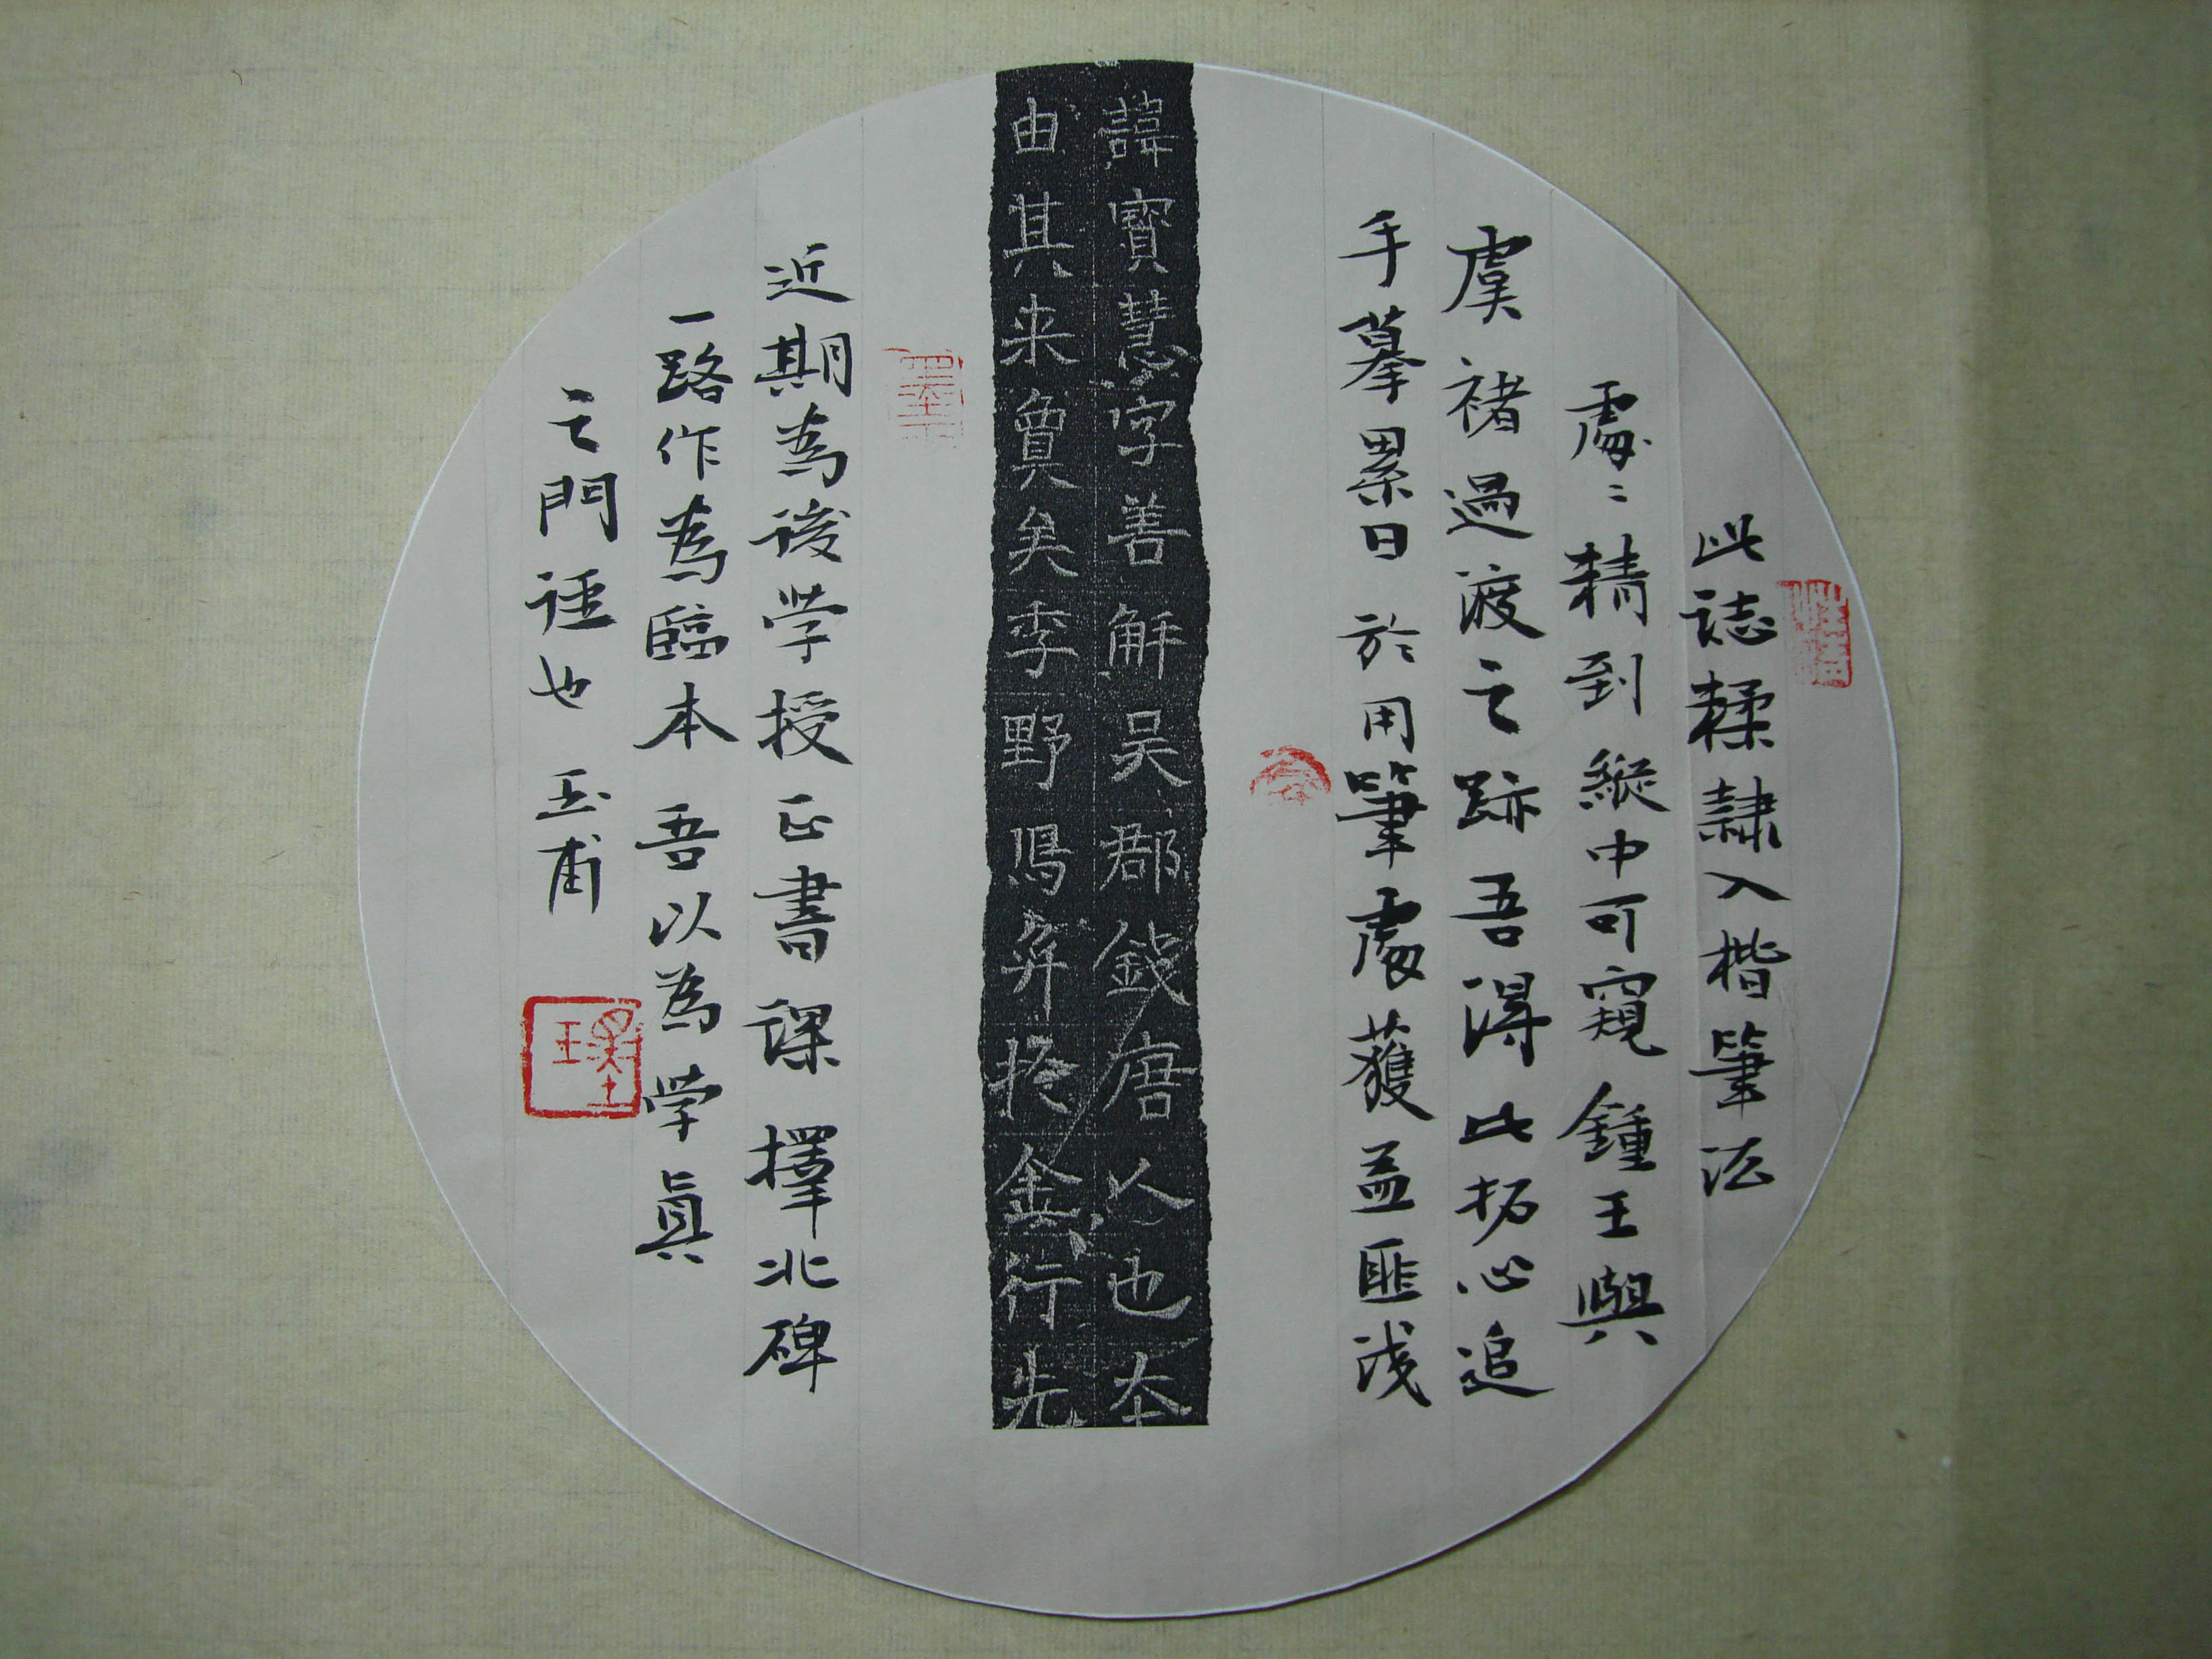 此誌鞣隷入楷筆法
處〻精到縱中可窺鍾王與
虞褚過渡之跡吾得此拓心追
手摹累日於用筆處獲益匪浅
諱寶慧字善解吴郡錢唐人也本
由其来貟矣季野馮弈於金行先
近期為後学授正書課擇北碑
一路作為臨本吾以為学真
之門徑也 玉甫